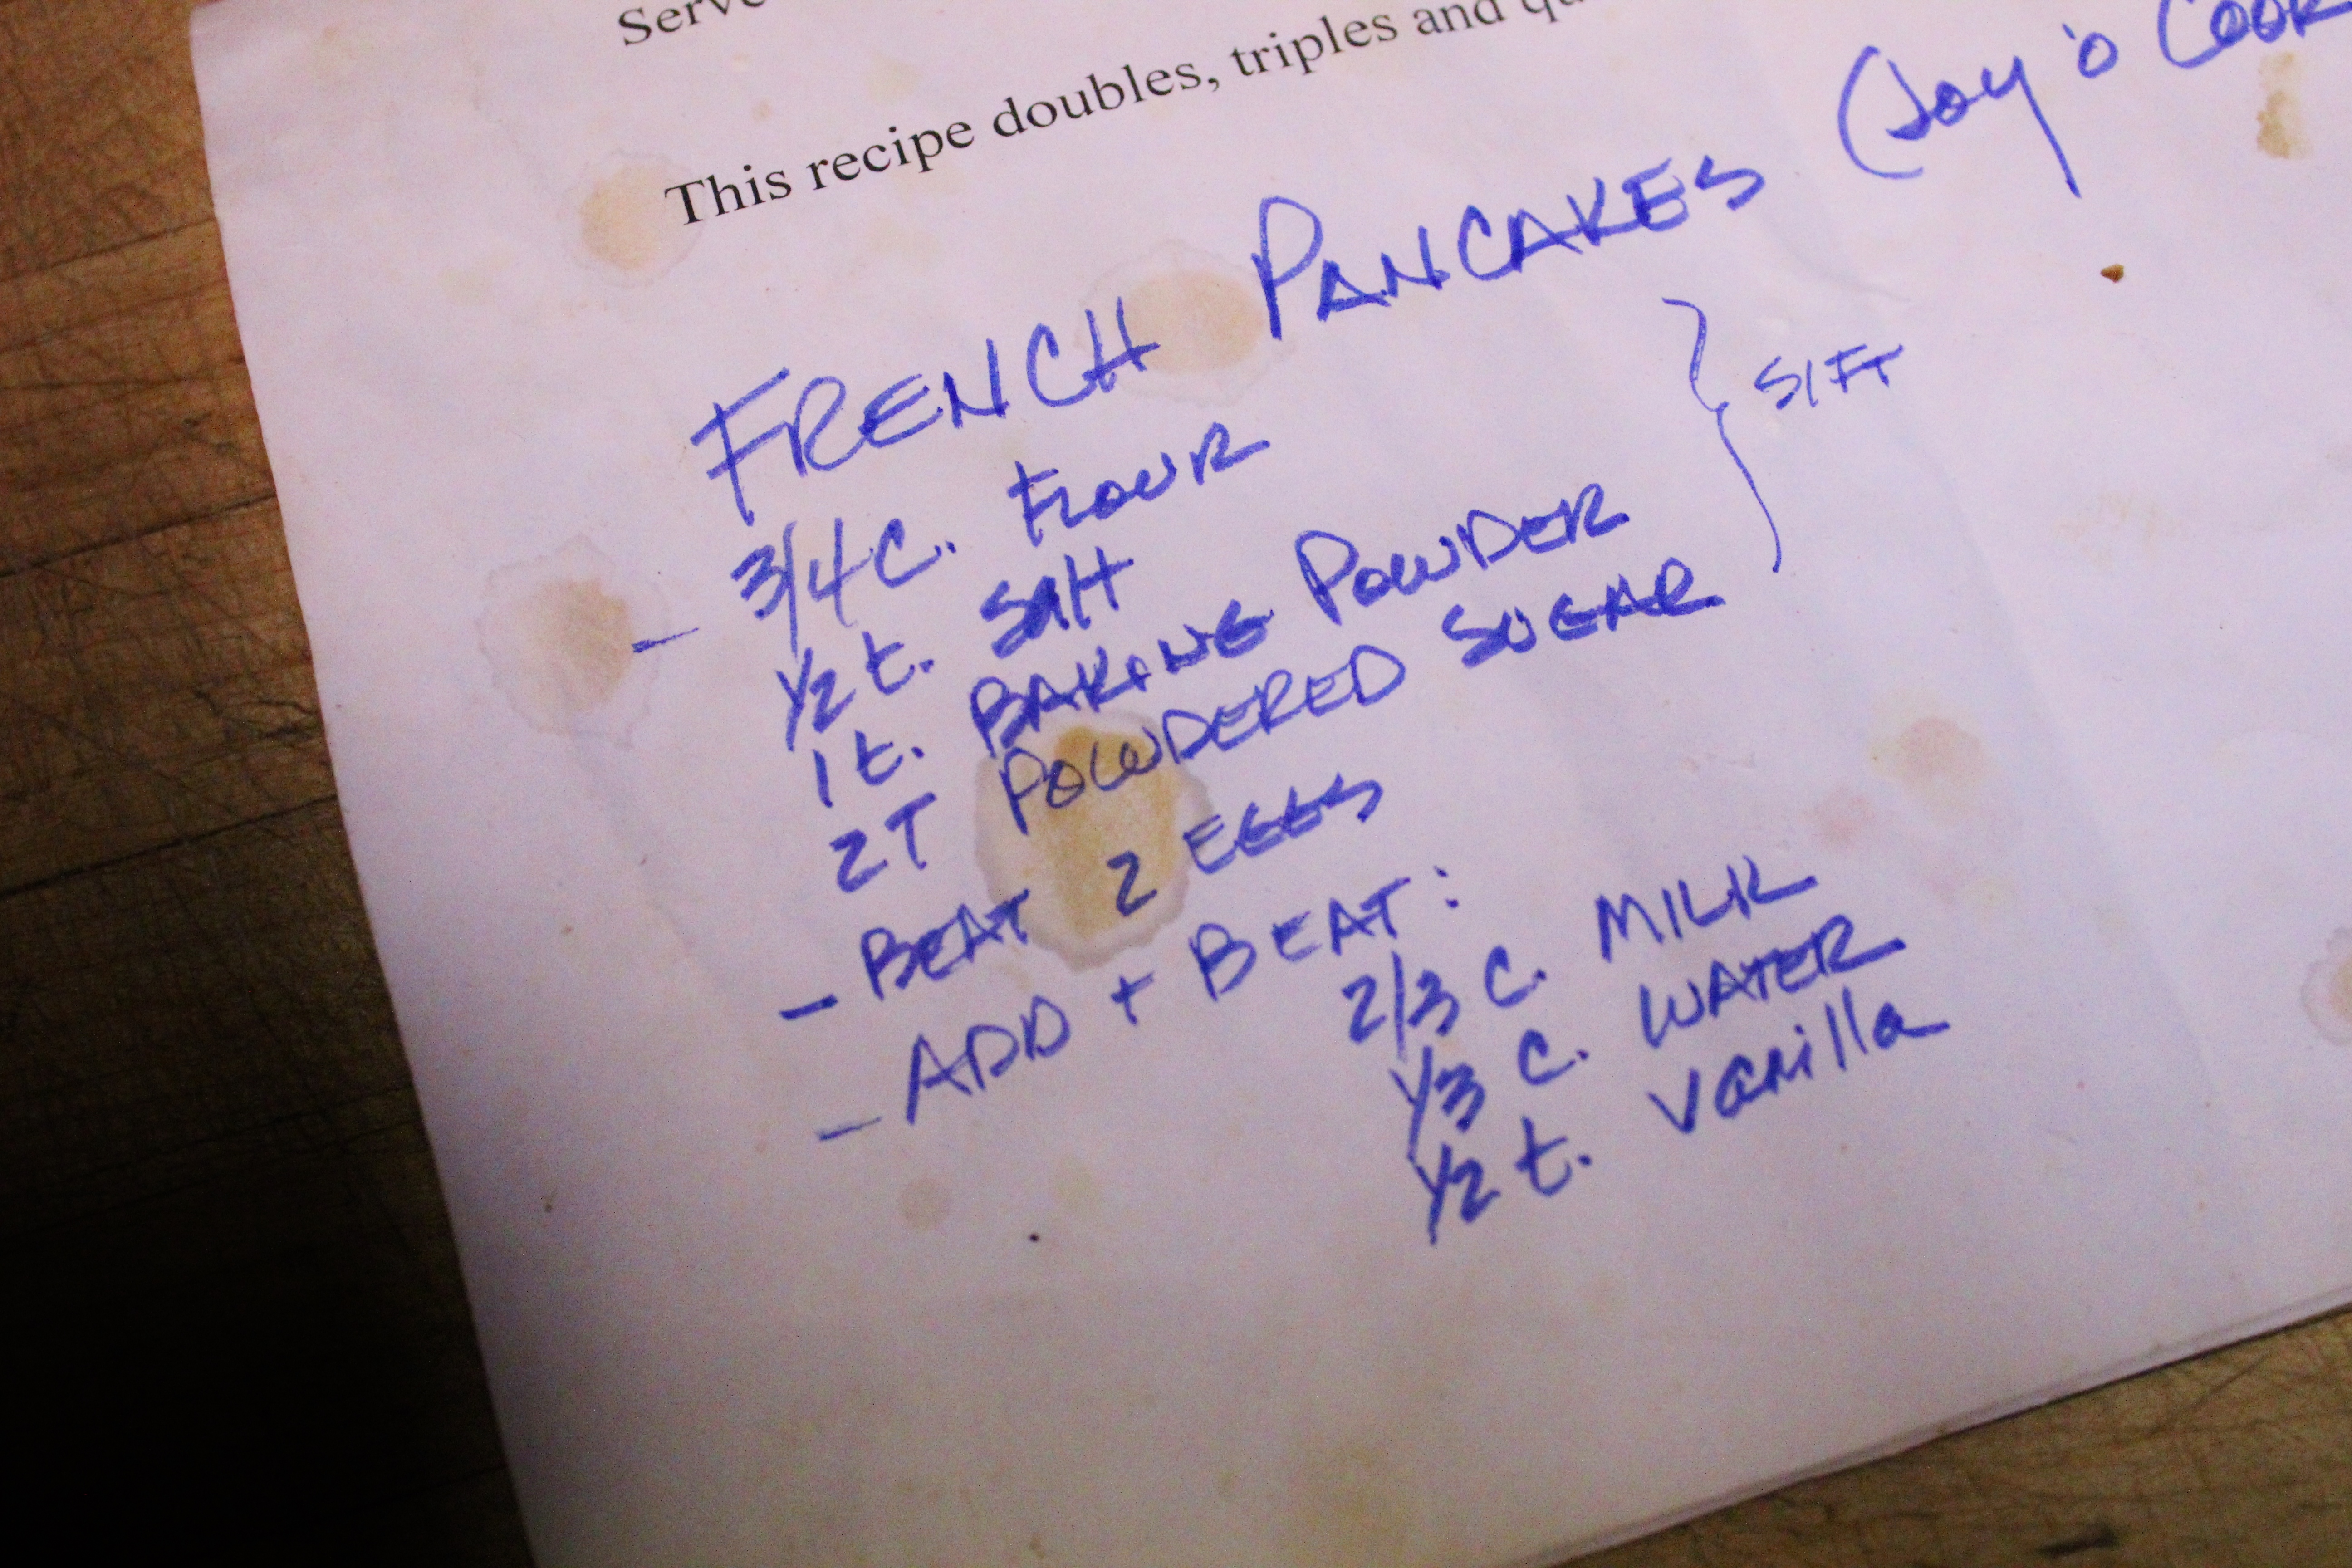 Serve
This recipe doubles, triples and qu
FRENCH PANCAKES (Joy 'o Cook
- 3/4 C. FLOUR
1/2 t. SAlt
1 t. BAKING POWDER
2T POWDERED SUGAR
} SIFT
- BEAT 2 EGGS
- ADD + BEAT:
2/3 C. MILK
1/3 C. WATER
1/2 t. vanilla